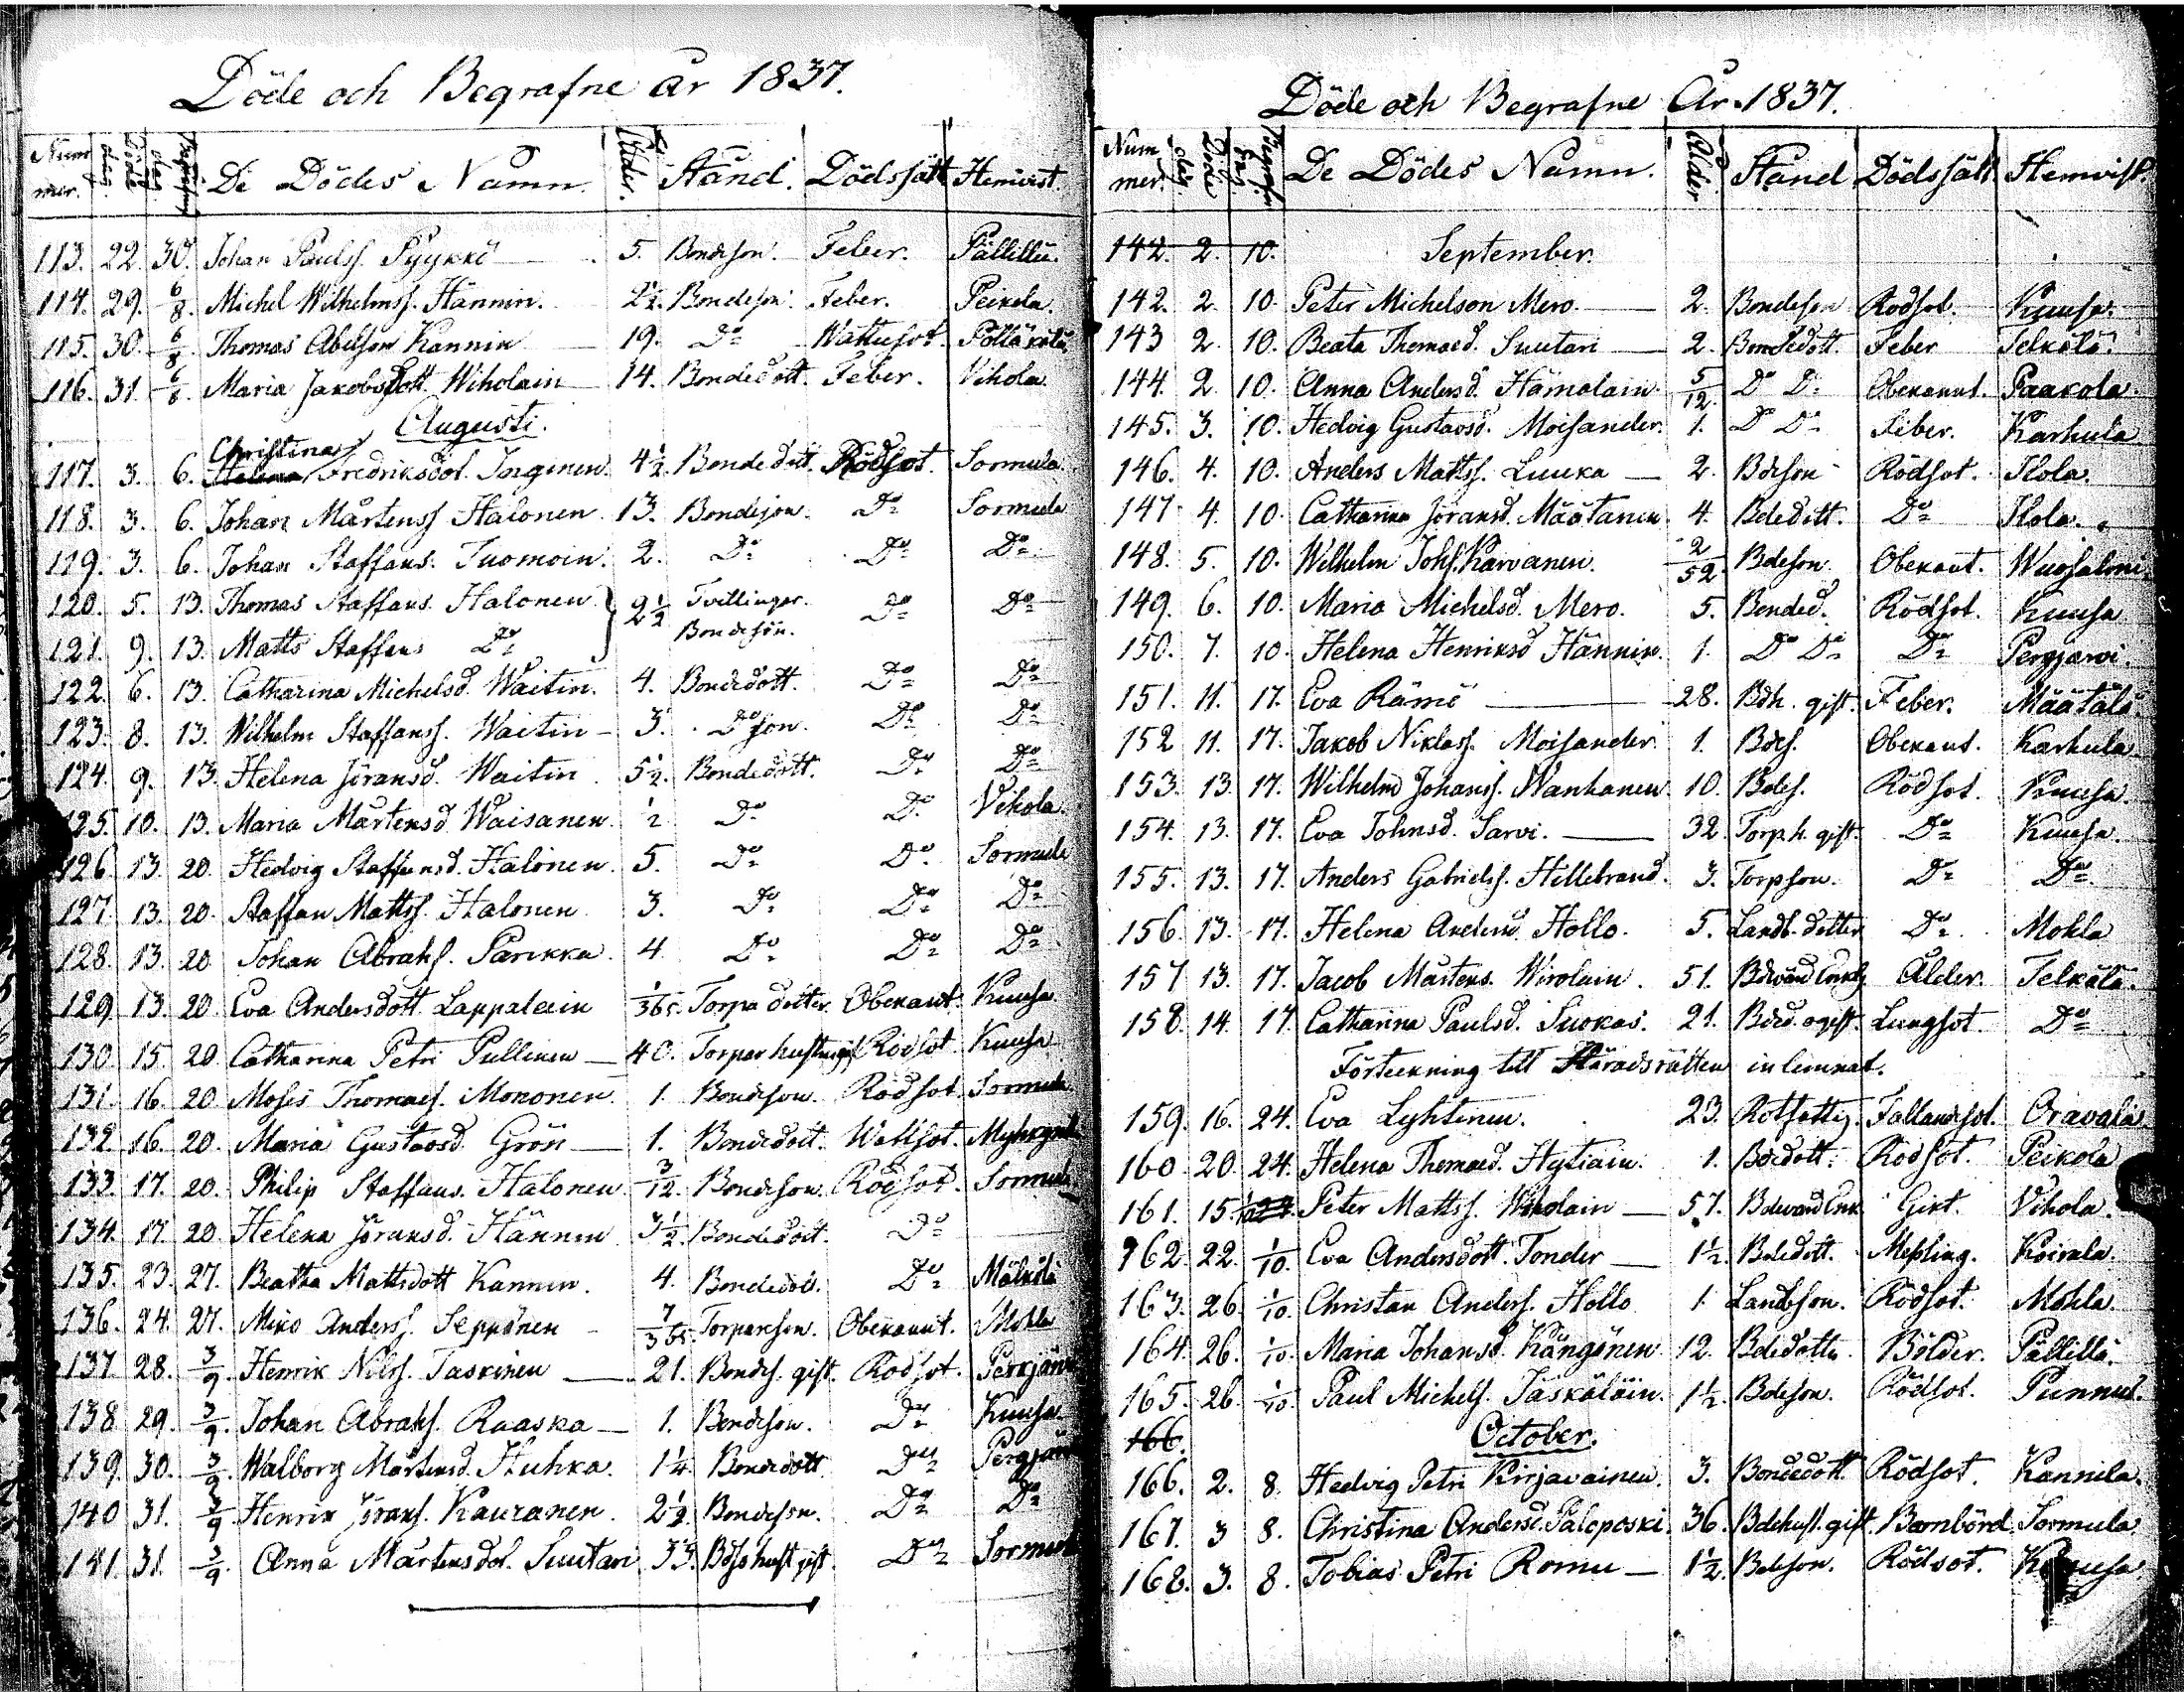 Döde och Begrafne år 1837.
Num mer. Döde dag Begrafn dag De Dödes Namn. Ålder. Stånd. Dödssätt Hemvist.
113. 22. 30. Johan Paulss. Pyykkö 5. Bondeson. Feber. Pällillä.
114. 29. 6/8. Michel Wilhelmss. Hännin. 2½. Bondeson. Feber. Peikola.
115. 30. 6/8. Thomas Abelson Kannin 19. Do Wattusot. Pölläkälä
116. 31. 6/8. Maria Jakobsdott Wiholain 14. Bondedott. Feber. Vihola
Augusti.
Christina
117. 3. 6. Helena Fredriksdot. Torginen. 4½. Bondedott. Rödsot. Sormula
118. 3. 6. Johan Mårtenss Halonen. 13. Bondeson. Do Sormula
119. 3. 6. Johan Staffans. Tuomoin. 2. Do Do Do
120. 5. 13. Thomas Staffans. Halonen } 9½ Tvillingar. Do Do
121. 9. 13. Matts Staffans Do Bondesön.
122. 6. 13. Catharina Michelsd. Waitin. 4. Bondedott. Do Do
123. 8. 13. Wilhelm Staffanss. Waitin 3. Do son. Do Do
124. 9. 13. Helena Jöransd. Waitin 5½. Bondedott. Do Do
125. 10. 13. Maria Mårtensd. Waisanen. ½ Do Do Vihola.
126. 13. 20. Hedvig Staffansd. Halonen. 5. Do Do Sormula
127. 13. 20. Staffan Mattss. Halonen 3. Do Do Do
128. 13. 20. Johan Abrahs. Parikka. 4. Do Do Do
129. 13. 20. Eva Andersdott Lappalain 1/365. Torpa dotter. Obekant. Kuusa
130. 15. 20. Catharina Petri Pullinen 40. Torpar hustru gift Rödsot. Kuusa
131. 16. 20. Moses Thomass. Mononen 1. Bondeson. Rödsot. Sormula
132. 16. 20. Maria Gustavsd. Grön 1. Bondedott. Wattsot.
133. 17. 20. Philip Staffans. Halonen 3/12. Bondeson. Rödsot. Sormula
134. 17. 20. Helena Jöransd. Hännin 3½. Bondedott. Do
135. 23. 27. Beatha Mattsdott Kannin. 4. Bondedot. Do Mälkölä
136. 24. 27. Mino Anderss. Seppönen 7/365. Torpareson. Obekannt. Mohla
137. 28. 3/9. Henrik Nilss. Taskinen 21. Bondes. gift. Rödsot. Perkjärvi
138. 29. 3/9. Johan Abrahs. Raaska 1. Bondeson. Do Kuusa.
139. 30. 3/9. Walborg Mårtensd. Huhka. 1¼. Bondedott. Do Pergjärvi
140. 31. 3/9. Henrik Jöranss. Kauranen. 2½. Bondeson. Do Do
141. 31. 3/9. Anna Mårtensdot. Suutari 33. hust. gift. Do Sormula
Döde och Begrafne År 1837.
Num mer. Döde dag Begrafn dag De Dödes Namn. Ålder Stånd Dödssätt. Hemvist.
142. 2. 10. September.
142. 2. 10. Peter Michelson Mero. 2. Bondeson Rödsot. Kuusa.
143 2. 10. Beata Thomasd. Suutari 2. Bondedott. Feber Telkälä.
144. 2. 10. Anna Andersd. Hämälain. 5/12. Do Do Obekannt. Paakola.
145. 3. 10. Hedvig Gustavsd. Moisander. 1. Do Do Feber. Karhula
146. 4. 10. Anders Mattss. Luuka 2. Bdeson Rödsot. Ilola.
147 4. 10. Catharina Jöransd. Määtänen. 4. Bdedott. Do Ilola.
148. 5. 10. Wilhelm Johs. Karvanen. 2/52. Bdeson. Obekant. Wuosalmi.
149. 6. 10. Maria Michelsd. Mero. 5. Bonded. Rödsot. Kuusa
150. 7. 10. Helena Henriksd Hännin. 1. Do Do Do Pergjärvi.
151. 11. 17. Eva Rämö 28. Bdh. gift. Feber. Määtälä.
152 11. 17. Jakob Niklass. Moisander 1. Bdes. Obekant. Karhula
153. 13. 17. Wilhelm Johanss. Wanhanen. 10. Bdes. Rödsot. Kuusa.
154. 13. 17. Eva Johnsd. Sarvi. 32. Torp. h. gift. Do Kuusa.
155. 13. 17. Anders Gabrielss. Hillebrand. 3. Torpson. Do Do
156. 13. 17. Helena Andersd. Hollo. 5. Landb. dotter Do Mohla
157 13. 17. Jacob Mårtens. Wirolain. 51. Ålder. Telkälä.
158. 14. 17. Catharina Paulsd. Suokas. 21. Bded. ogift. Lungsot. Do
Förteckning till Häradsrätten inlemnat.
159. 16. 24. Eva Lyhtinen. 23. Fallandesot. Oravala.
160. 20. 24. Helena Thomasd. Hytiäin. 1. Bdedott. Rödsot. Peikola
161. 15. Peter Mattss. Wiholain 57. Vihola.
162. 22. 1/10. Eva Andersdott. Tonder 1½. Bdedott. Messling. Koirala.
163. 26. 1/10. Christian Anderss. Hollo 1. Landbson. Rödsot. Mohla
164. 26. 1/10. Maria Johansd. Kängönen. 12. Bdedotter. Bölder. Pällillä.
165. 26. 1/10. Paul Michelss. Jäskäläin. 1½. Bdeson. Rödsot. Punnus.
166. October.
166. 2. 8. Hedvig Petri Kirjavainen. 3. Bondedott. Rödsot. Kannila.
167. 3 8. Christina Andersd. Paloposki. 36. Bdehust. gift. Barnbörd. Sormula
168. 3. 8. Tobias Petri Romu 1½. Bdeson. Rödsot. Kuusa